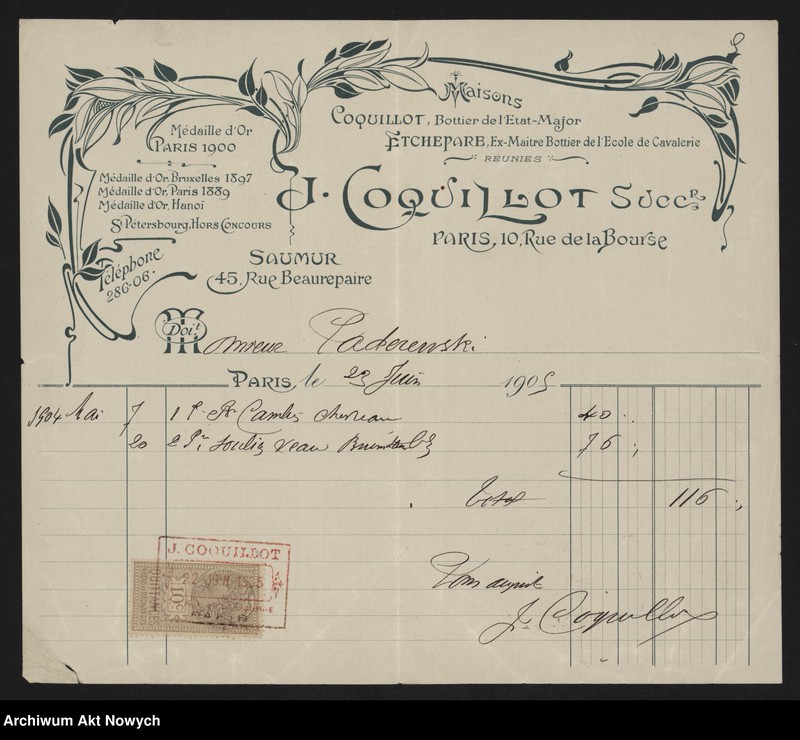 Maisons
Coquillot, Bottier de l'Etat-Major
Etchepare, Ex-Maitre Bottier de l'Ecole de Cavalerie
RÉUNIES
J. Coquillot Succr
PARIS, 10, Rue de la Bourse
Médaille d'Or
PARIS 1900
Médaille d'Or, Bruxelles 1897
Médaille d'Or, Paris 1889
Médaille d'Or, Hanoï
St Pétersbourg, Hors Concours
Téléphone
286-06.
SAUMUR
45, Rue Beaurepaire
Doit
Monsieur Paderewski
PARIS, le 23 Juin 1905
1904 Mai 7 1 Pr chevreau 40
20 2 Pr Souliers veau 76
Total 116
Pour acquit
J. Coquillot
J. COQUILLOT
PARIS
Archiwum Akt Nowych